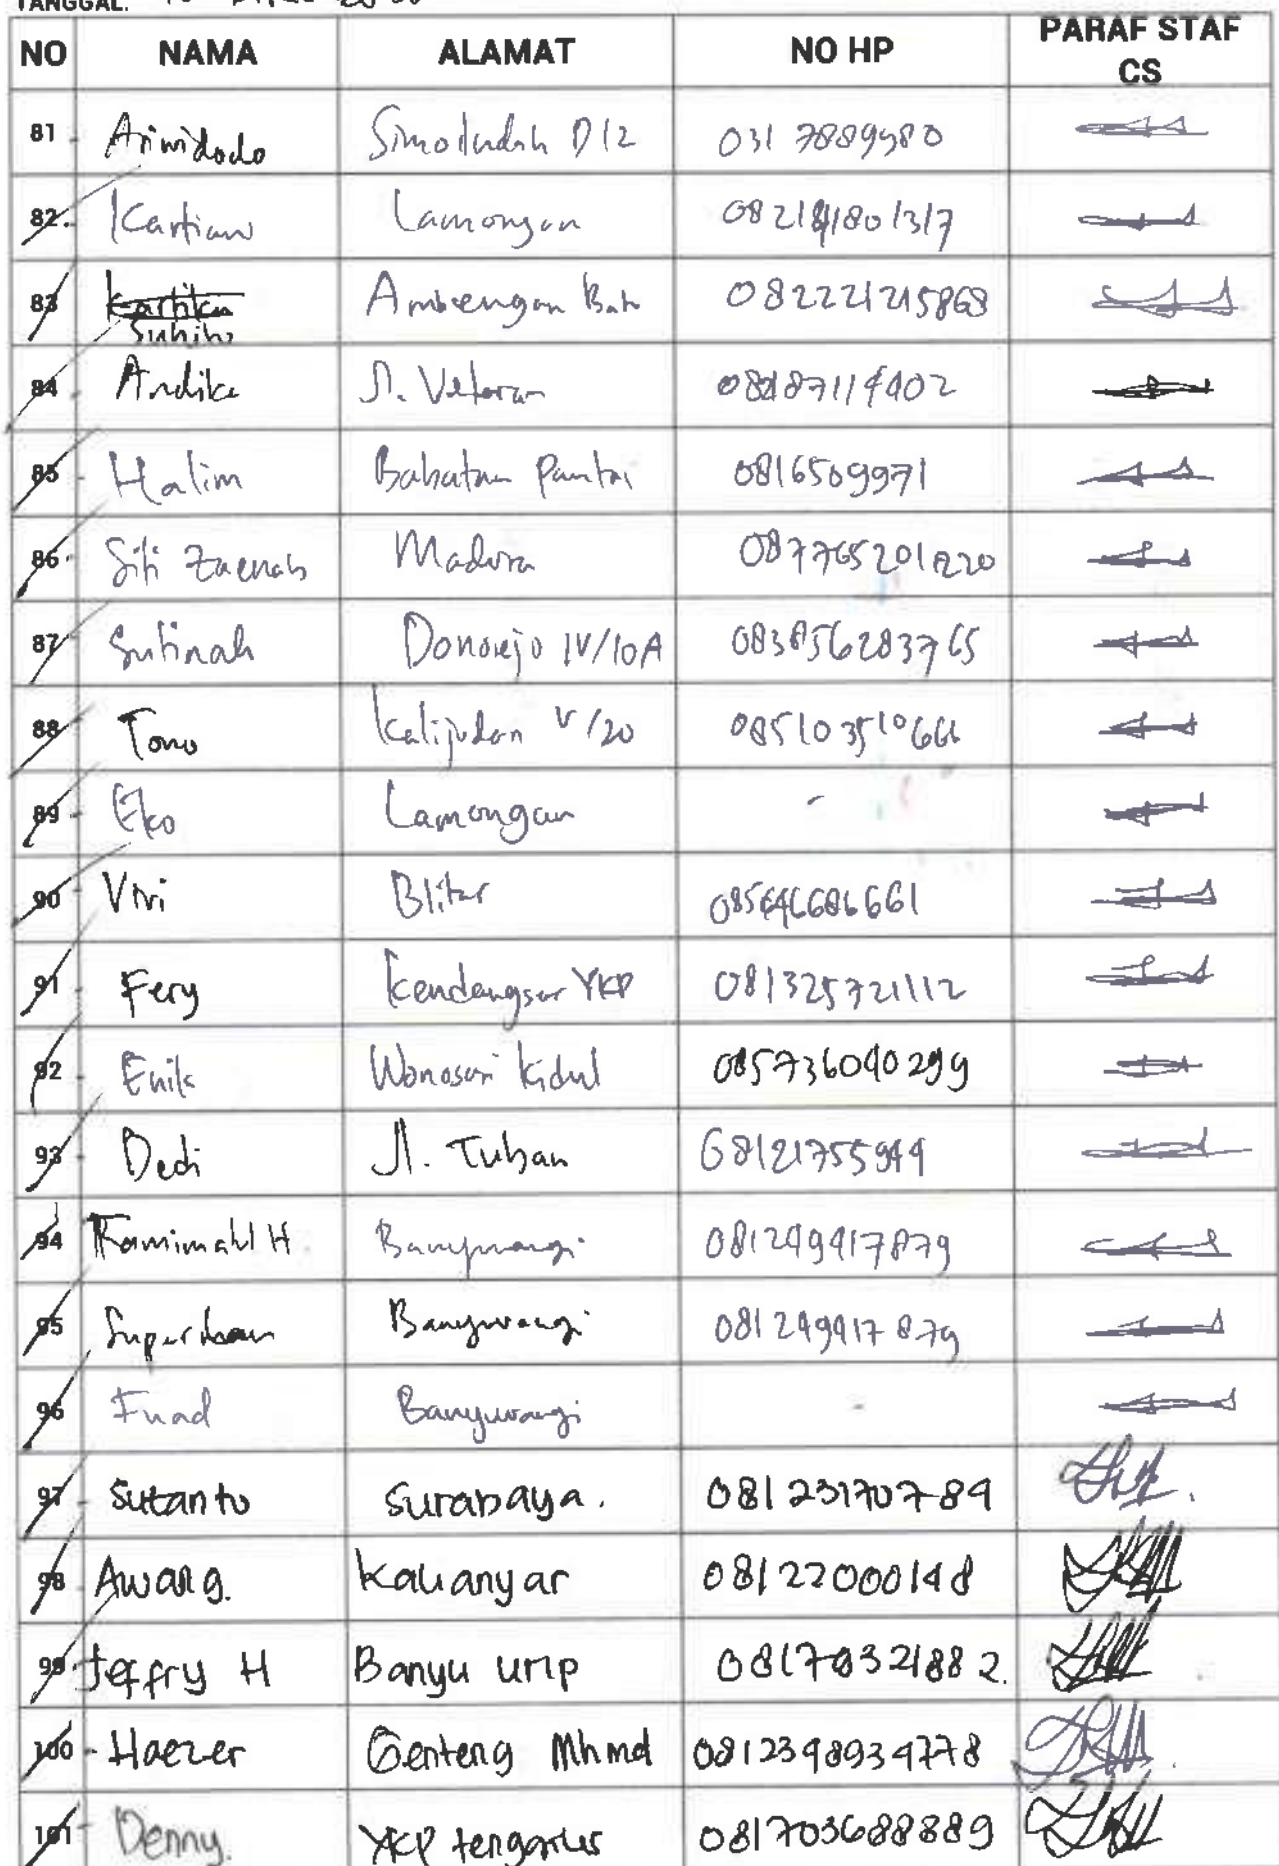 TANGGAL:
NO NAMA ALAMAT NO HP PARAF STAF CS
81 Ariwidodo Simoludah D12 031 7889980
82. Kartiano Lamongan
83 Kartika Suhito Ambengan Batu 082221215868
84 Andika Jl. Veteran
85 Halim Babatan Pantai 0816509971
86 Siti Zaenab Madura
87 Sutinah Donorejo IV/10A 083856283765
88 Tono Kalijudan V/20 085103510666
89 Eko Lamongan -
90 Vivi Blitar 085646686661
91 Fery Kendangsar YKP 081325721112
92 Enik Wonosari Kidul 085736040299
93 Dedi Jl. Tuban 08121755944
94 H Banyuwangi 081249417879
95 Banyuwangi 081249417879
96 Fuad Banyuwangi -
97 Sutanto Surabaya. 081231707 84
98 Awang. Kalianyar 08122000148
99 Jeffry H Banyu urip 08170321882.
100 Haezer Genteng Mhmd 0812348934778
101 Denny. YKP 081703688889